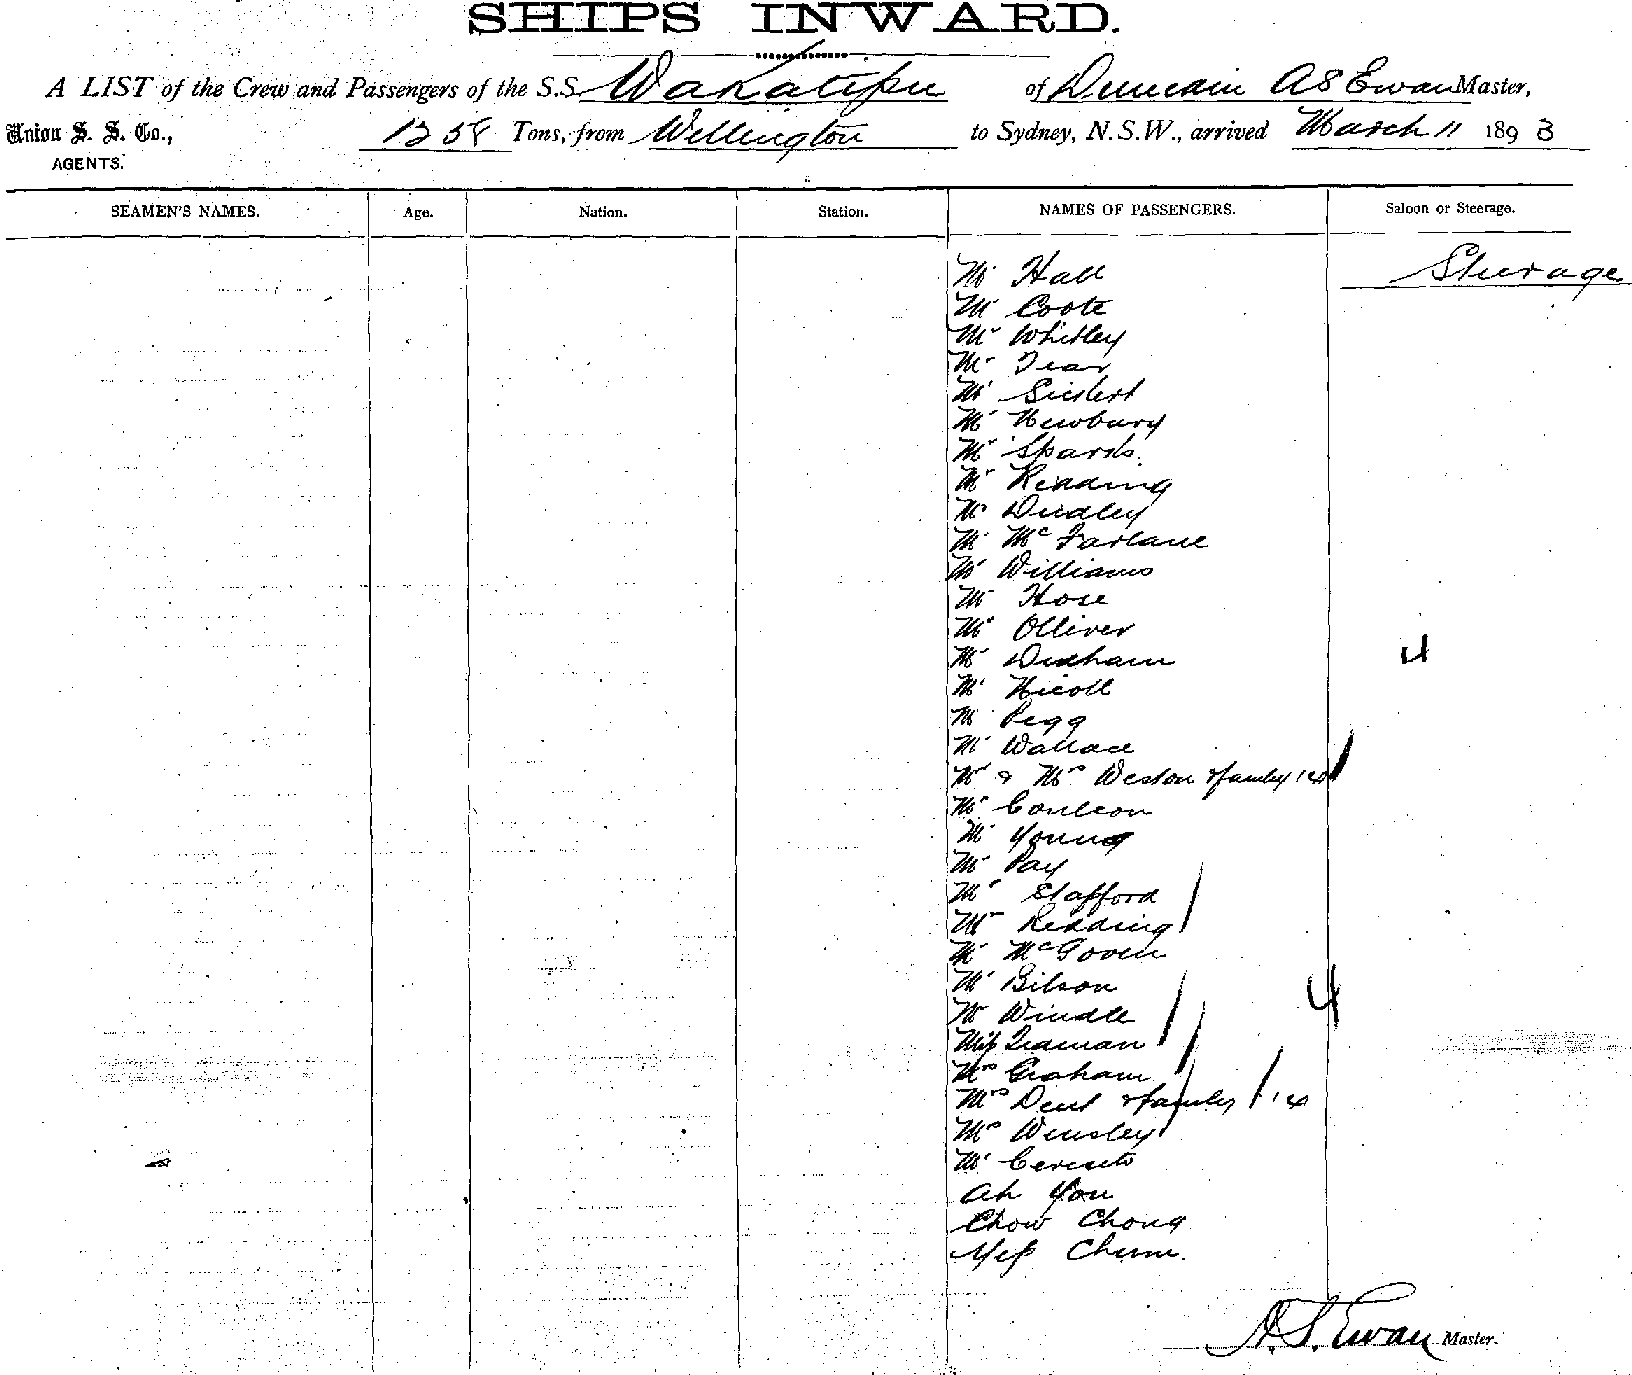 SHIPS INWARD.
A LIST of the Crew and Passengers of the S.S. Wakatipu of Dunedin A S Ewan Master,
Union S. S. Co., 1258 Tons, from Wellington to Sydney, N.S.W., arrived March 11 1893
AGENTS.
SEAMEN'S NAMES. Age. Nation. Station. NAMES OF PASSENGERS. Saloon or Steerage.
Mr Hall Steerage
Mr Coote
Mr Whitley
Mr Tear
Mr
Mr Newbury
Mr Sparks.
Mr Redding
Mr Dudley
Mr McFarlane
Mr Williams
Mr Hose
Mr Olliver
Mr 4
Mr Nicoll
Mr Pegg
Mr Wallace
Mr & Mrs Weston & family
Mr Coulson
Mr Young
Mr Pay
Mr Stafford
Mr Redding
Mr McGoven
Mr Bilson
Mr Windle 4
Miss
Mrs Graham
Mrs Dent & family
Mrs Wensley
Mr
Ah You
Chow Chong
Yep Chum.
A. S. Ewan Master.